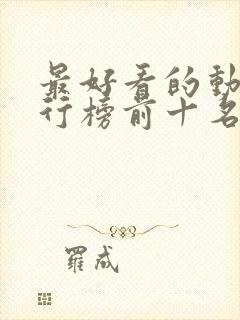 最好看的動
行榜前十名
羅成